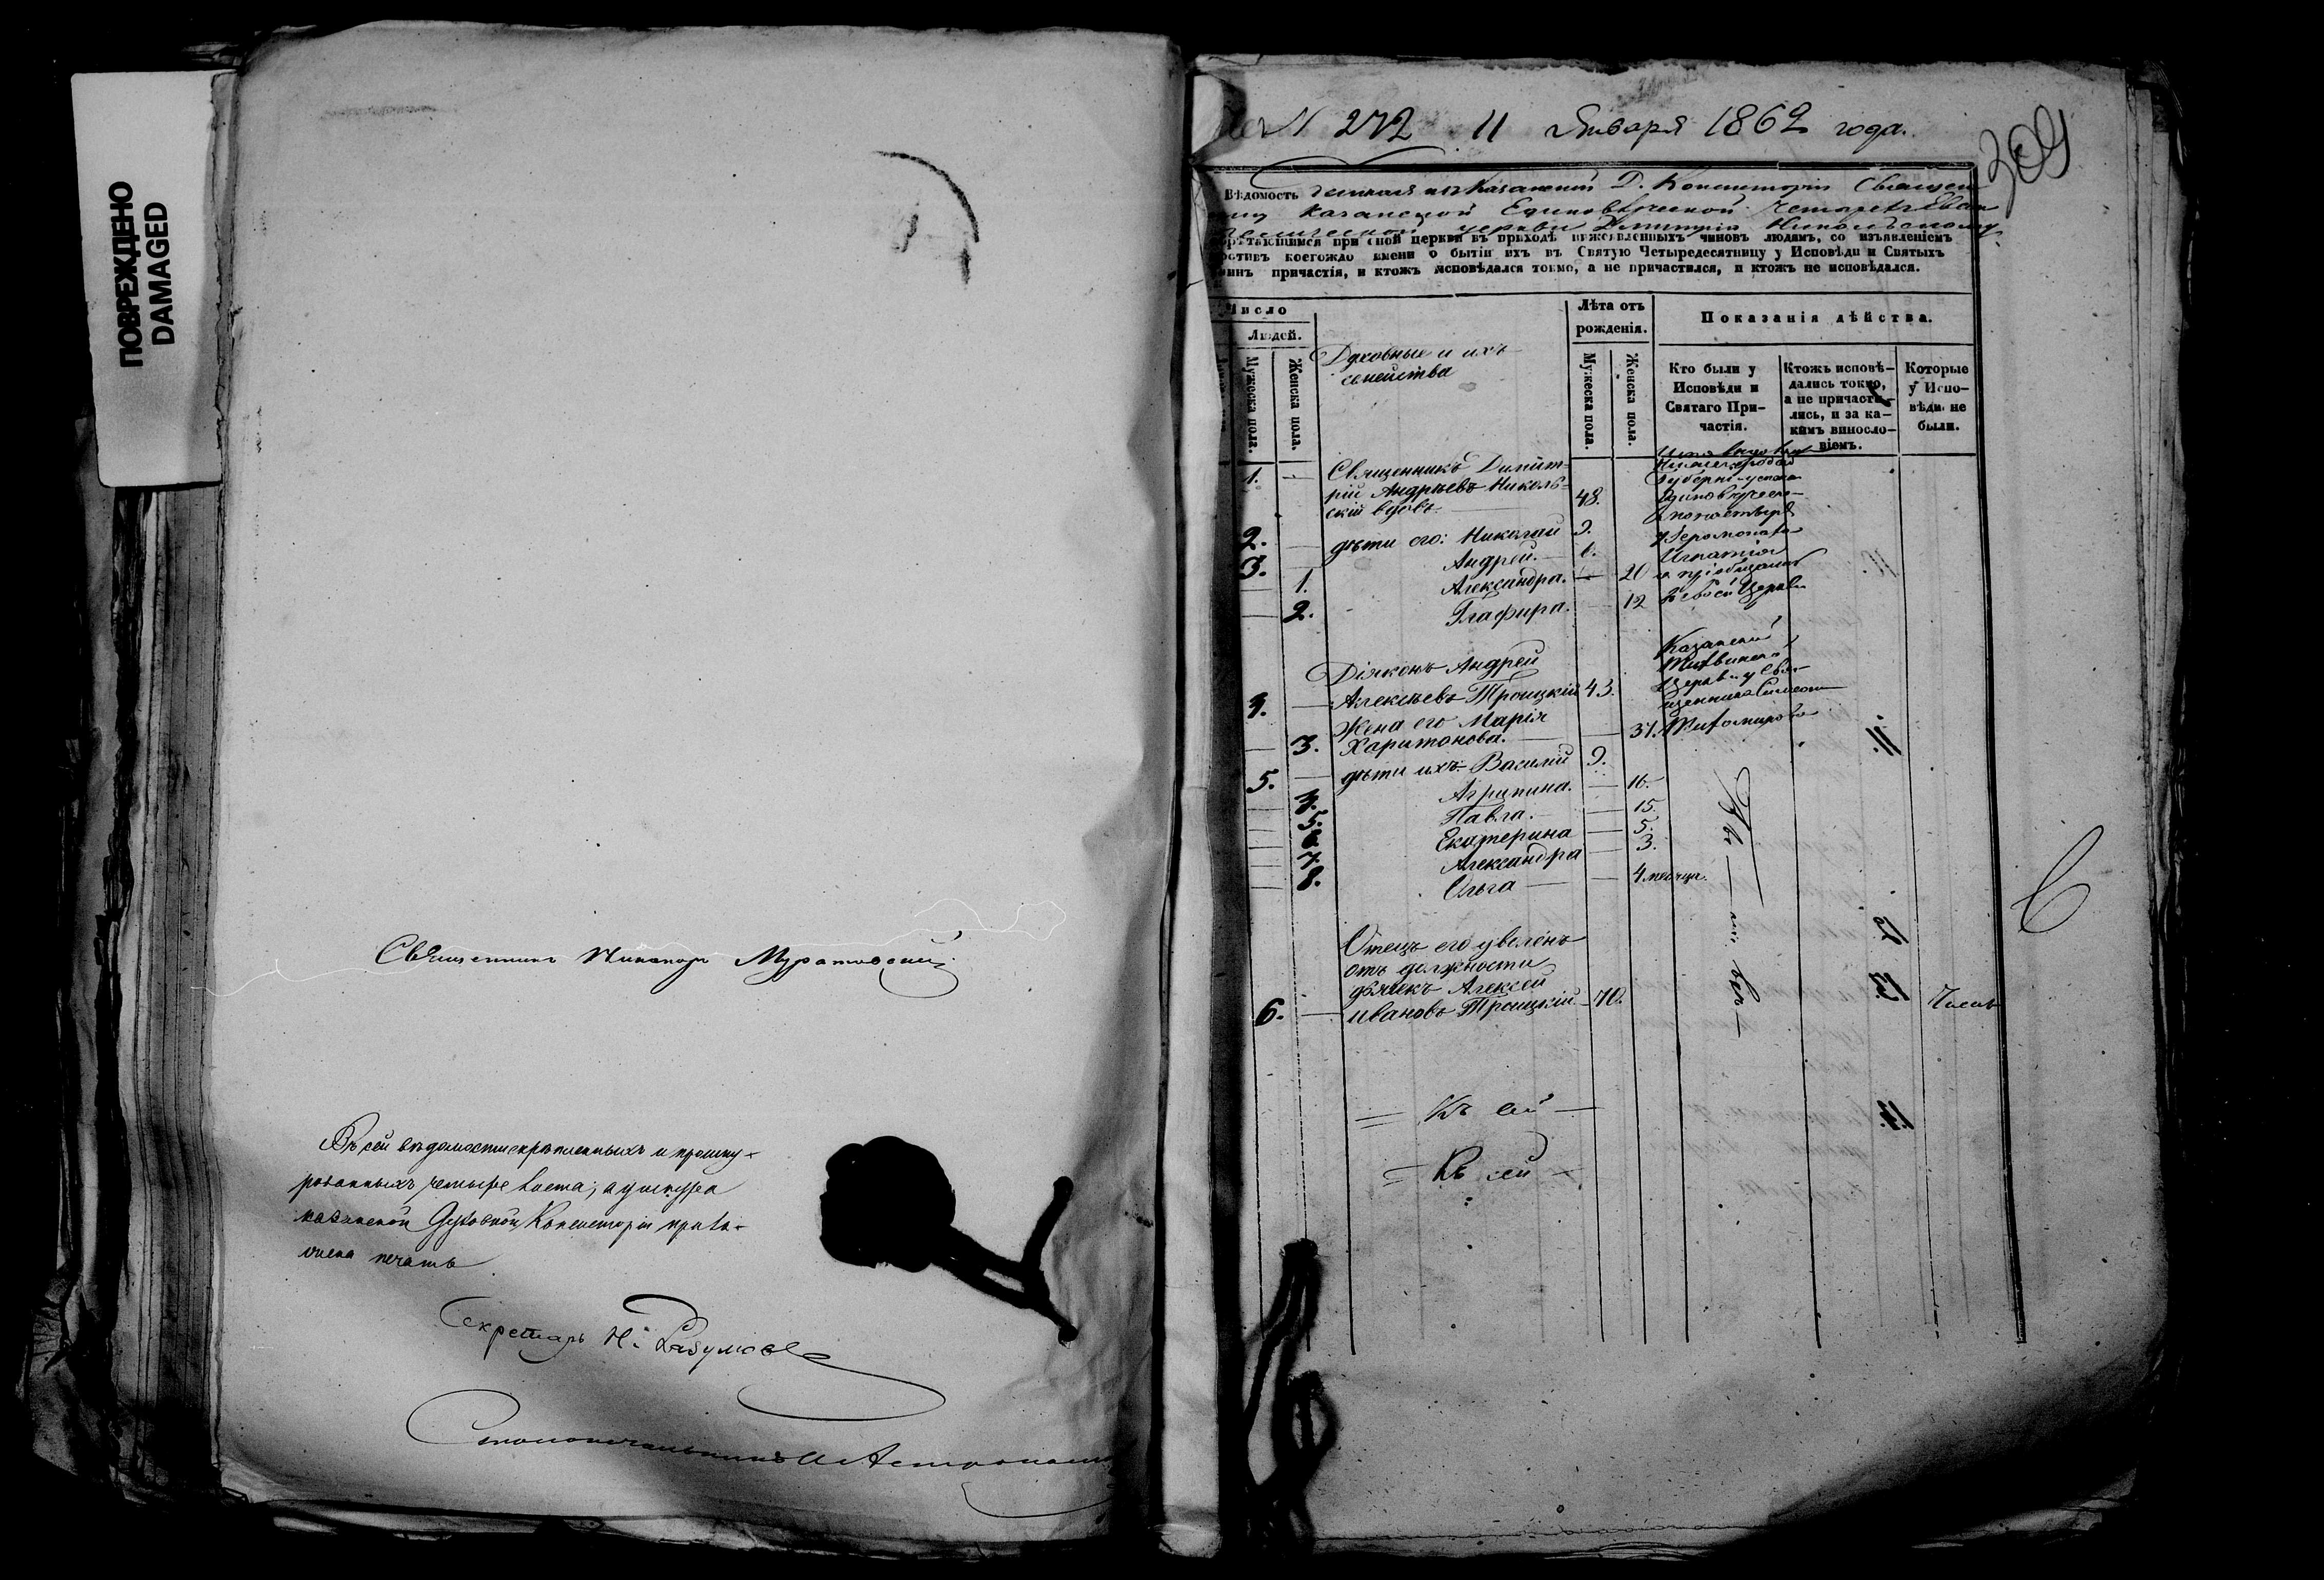 ПОВРЕЖДЕНО
DAMAGED
Священникъ Никаноръ Муратовский
Въ сей ведомости скрепленныхъ и прошну-
рованныхъ четыре листа; а у шнура
казанской Духовной Консисторіи прило-
жена печать
Секретарь Н. Разумовъ
Столоначальникъ
№ 272 11 Января 1862 года.
309
Вѣдомость данная изъ Казанской Д. Консисторіи Священ
нику Казанской Единовѣрческой Четыреево
церкви Димитрію Никольскому
обрѣтающимся при оной церкви въ приходѣ нижеявленныхъ чиновъ людямъ, со изъявленіемъ
противъ коегождо имени о бытіи ихъ въ Святую Четыредесятницу у Исповѣди и Святыхъ
Таинъ причастія, и ктожъ исповѣдался токмо, а не причастился, и ктожъ не исповѣдался.
Число
Людей.
Мужеска пола.
Женска пола.
Духовные и ихъ
семейства
Лѣта отъ
рожденія.
Мужеска пола.
Женска пола.
Показанія дѣйства.
Кто были у
Исповѣди и
Святаго При-
частія.
Ктожъ исповѣ-
дались токмо,
а не причасти-
лись, и за ка-
кимъ винословіемъ.
Которые
у Испо-
вѣди не
были.
1. — Священникъ Димит-
рій Андреевъ Николь-
скій вдовъ. 48.
2. — дѣти его: Николай 9.
3. — Андрей. 6.
1. Александра. — 20
2. Глафира. — 12
Губерніи
Единовѣрческ
монастырѣ
у Іеромонаха
Игнатія
и пріобщались
въ своей Церкви
Діаконъ Андрей
4. — Алексѣевъ Троицкій 43.
Жена его Марія
3. Харитонова. — 37.
Казанской
Тихвинской
Церкви у Свя-
щенника
Тихомирова
5. — дѣти ихъ: Василій 9.
4. Агрипина. — 16.
5. Павла. — 15.
6. Екатерина — 5.
7. Александра — 3.
8. Ольга — 4 месяца.
Отецъ его уволенъ
отъ должности
дьячекъ Алексей
6. — Ивановъ Троицкій 70.
= Къ сей —
= Къ сей —